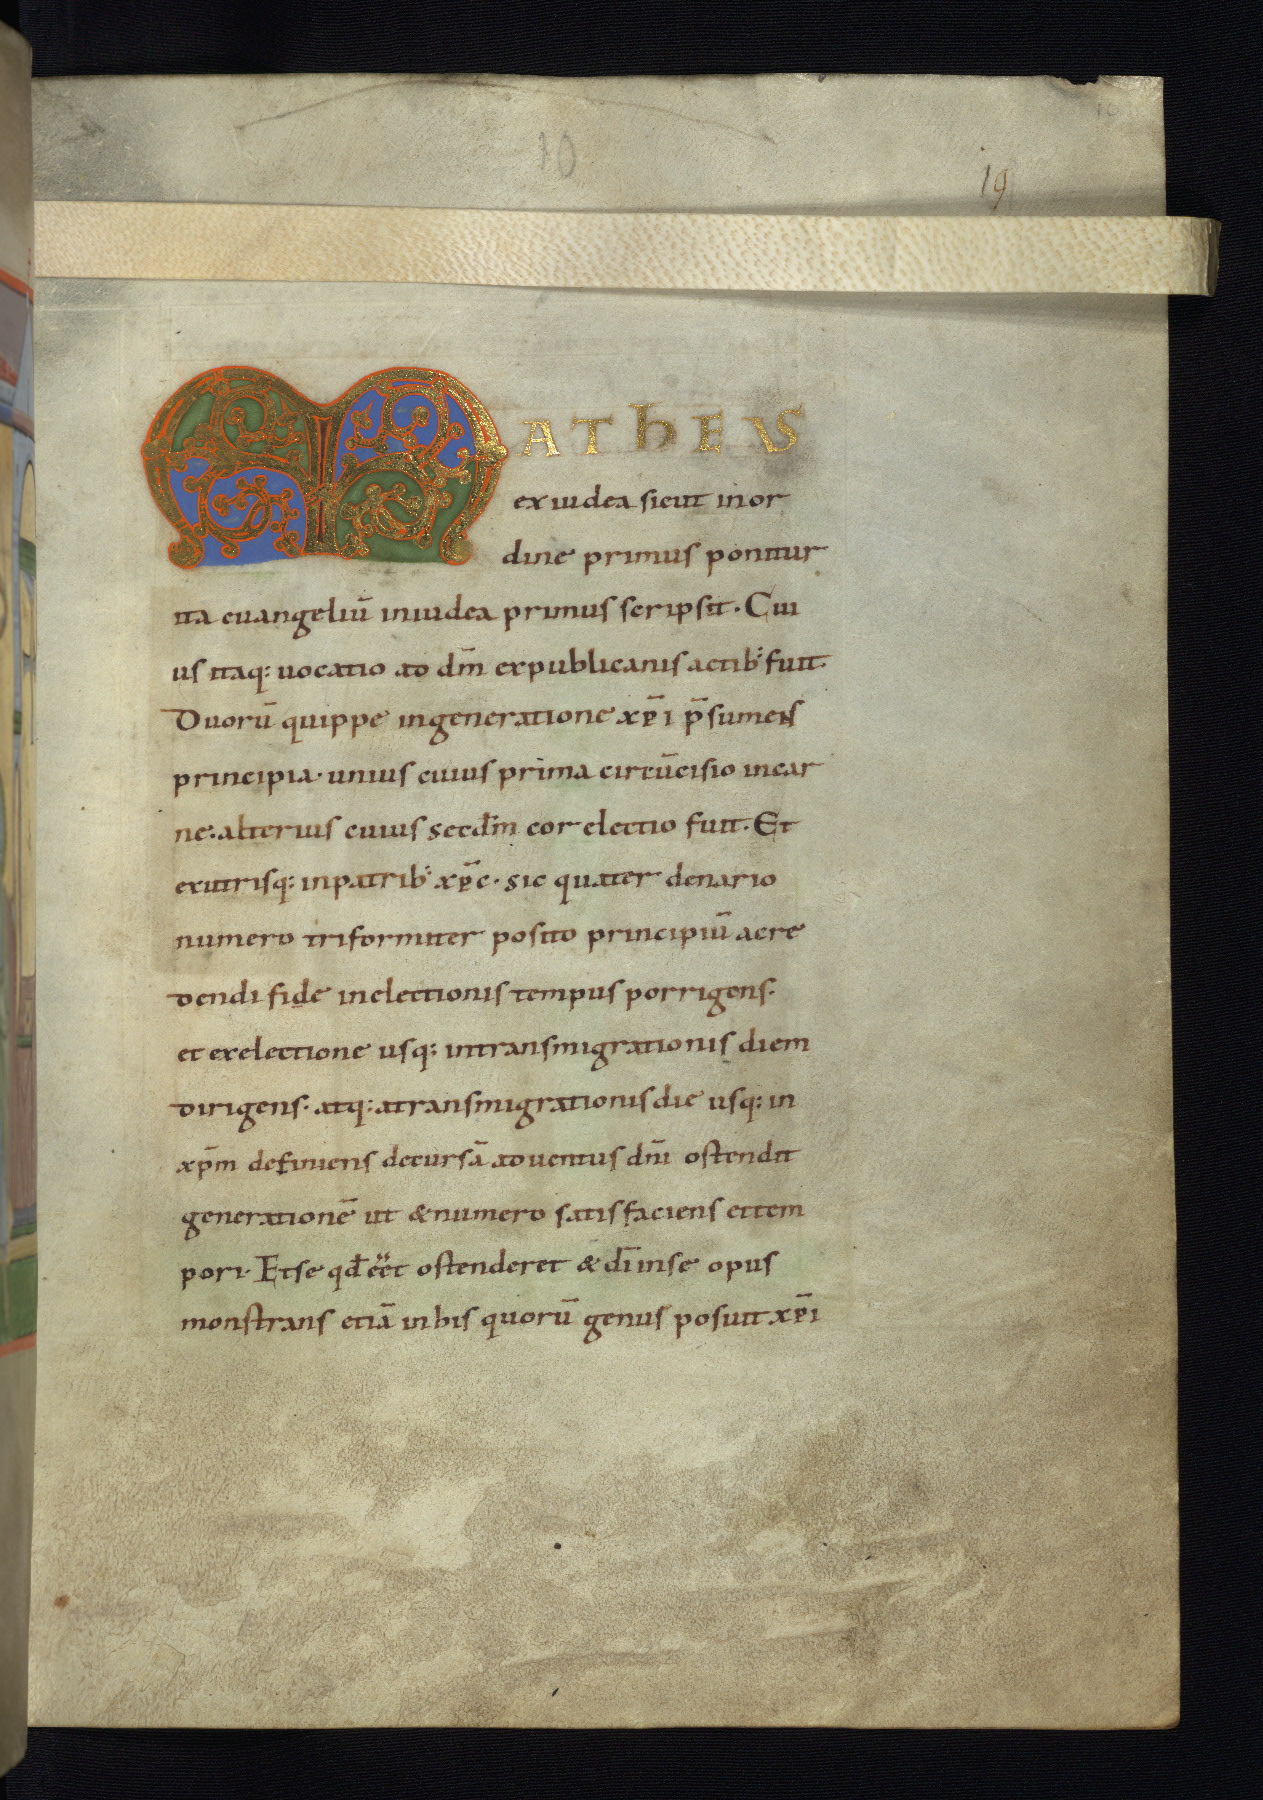 10
19
MATHEUS
ex iudea sicut in or
dine primus ponitur
ita euangeliū in iudea primus scripsit · Cui
us itaq: uocatio ad dm̄ ex publicanis actib: fuit ·
Duorū quippe in generatione xp̄i p̄sumens
principia · unius cuius prima circūcisio in car
ne: alterius cuius secdm̄ cor electio fuit · Et
ex utrisq: in patrib: xp̄c · sic quater denario
numero triformiter posito principiū a cre
dendi fide in electionis tempus porrigens ·
et ex electione usq: in transmigrationis diem
dirigens · atq: a transmigrationis die usq: in
xp̄m definiens decursā aduentus dn̄i ostendit
generationē ut & numero satisfaciens et tem
pori · Et se qd̄ eēt ostenderet & dī in se opus
monstrans etiā in his quorū genus posuit xp̄i